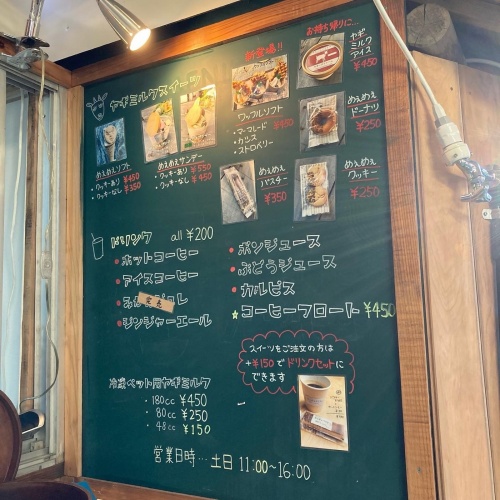 ヤギミルクスイーツ
めぇめぇソフト
・クッキーあり ¥450
・クッキーなし ¥350
めぇめぇサンデー
・クッキーあり ¥550
・クッキーなし ¥450
新登場!!
ワッフルソフト
・マーマレード
・カシス
・ストロベリー
めぇめぇ
バスター
¥350
お持ち帰りに…
ヤギ
ミルク
アイス
¥450
めぇめぇ
ドーナツ
¥250
めぇめぇ
クッキー
¥250
ドリンク all ¥200
・ホットコーヒー
・アイスコーヒー
完売
・ジンジャーエール
・ポンジュース
・ぶどうジュース
・カルピス
☆コーヒーフロート ¥450
スイーツをご注文の方は
+¥150でドリンクセットに
できます
冷凍ペット用ヤギミルク
・180cc ¥450
・80cc ¥250
・48cc ¥150
営業日時…土日 11:00~16:00